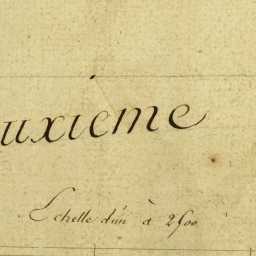 uxieme
Echelle d'un à 2500